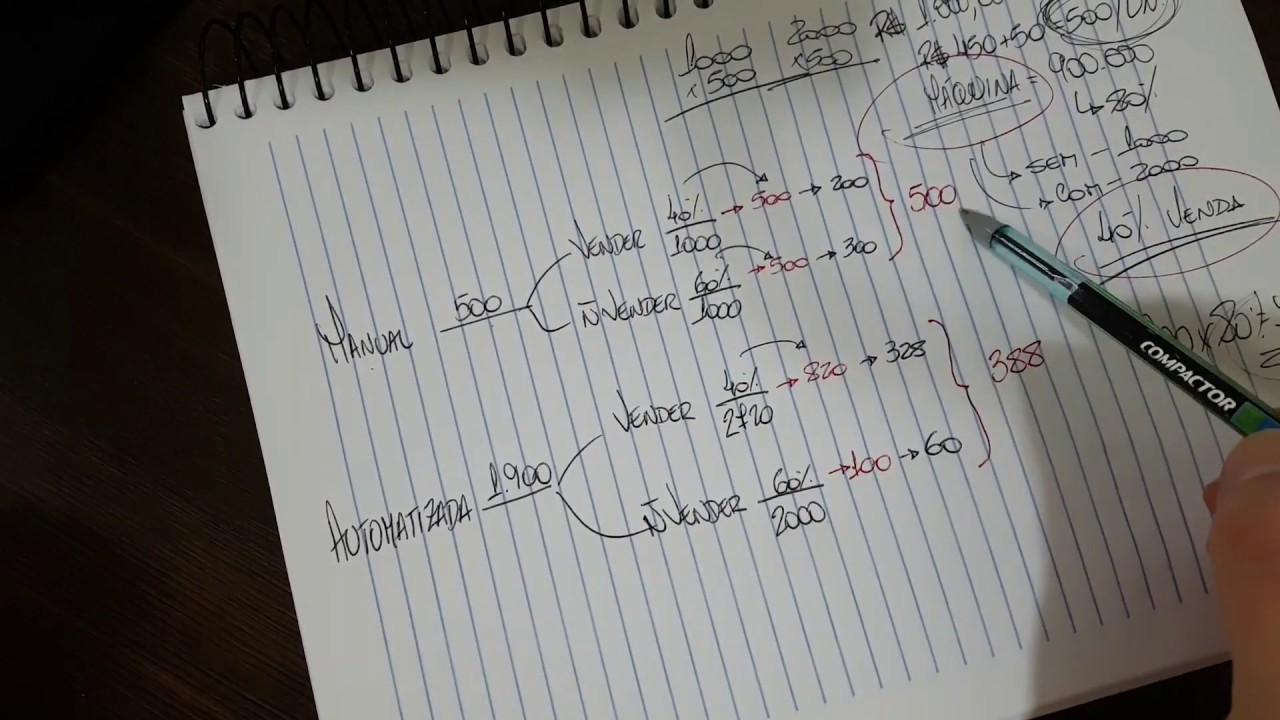 1000
x 500
2000
x500
R$ 1.000,0
R$ 450+50
500/UN
MÁQUINA = 900.000
↳ 80%
→ SEM - 1000
→ COM - 2000
40% VENDA
x 80%
MANUAL 500
VENDER 40% → 500 → 200
1000
ÑVENDER 60% → 500 → 300
1000
500
AUTOMATIZADA 1.900
VENDER 40% → 820 → 328
2720
ÑVENDER 60% → 100 → 60
2000
388
COMPACTOR